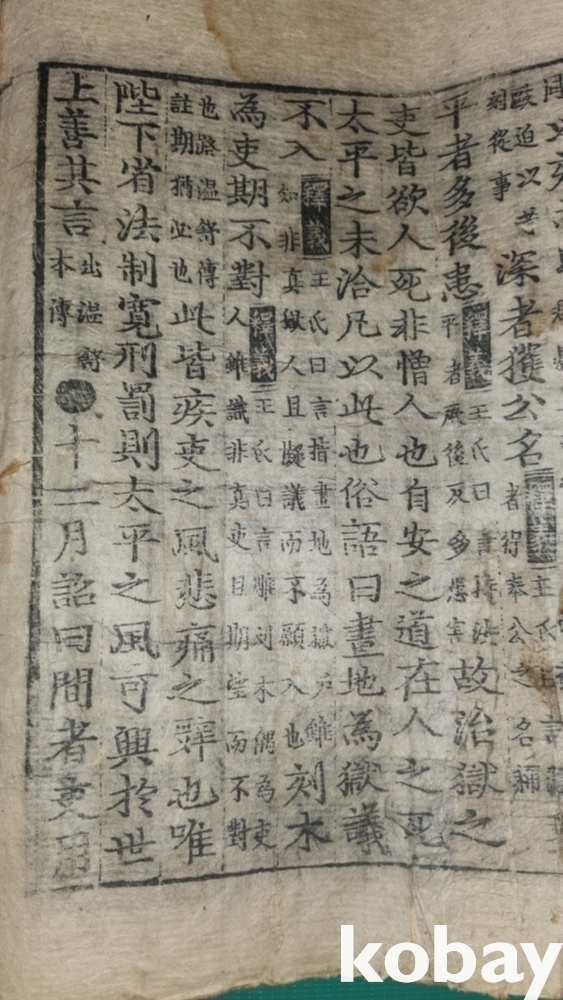 敺迫以
刻從事
深者獲公名
釋義
王氏曰
者得奉公之名稱
平者多後患
釋義
王氏曰言持法
平者厥後反多患害
故治獄之
吏皆欲人死非憎人也自安之道在人之死
太平之未洽凡以此也俗語曰畫地為獄議
不入
釋義
王氏曰言指畫地為獄戶雖
如非真獄人且擬議而不願入也
刻木
為吏期不對
釋義
王氏曰言雖刻木偶為吏
人雖識非真吏且期望而不對
也路溫舒傳
註期猶必也
此皆疾吏之風悲痛之辭也唯
陛下省法制寬刑罰則太平之風可興於世
上善其言
出溫舒
本傳
十二月詔曰間者吏用
kobay